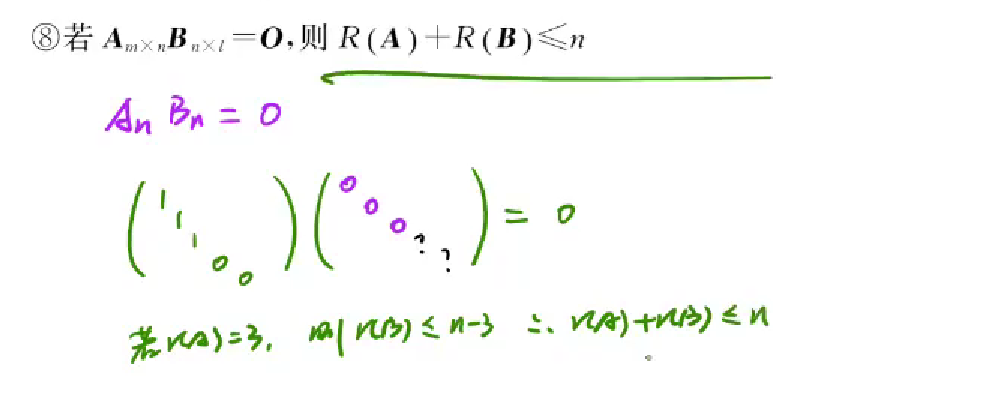 ⑧若 Aₘ×ₙBₙ×ₗ=O,则 R(A)+R(B)≤n
Aₙ Bₙ = 0
( 1 1 1 0 0 ) ( 0 0 0 ? ? ) = 0
若 r(A)=3, 则 r(B) ≤ n-3 ∴ r(A)+r(B) ≤ n